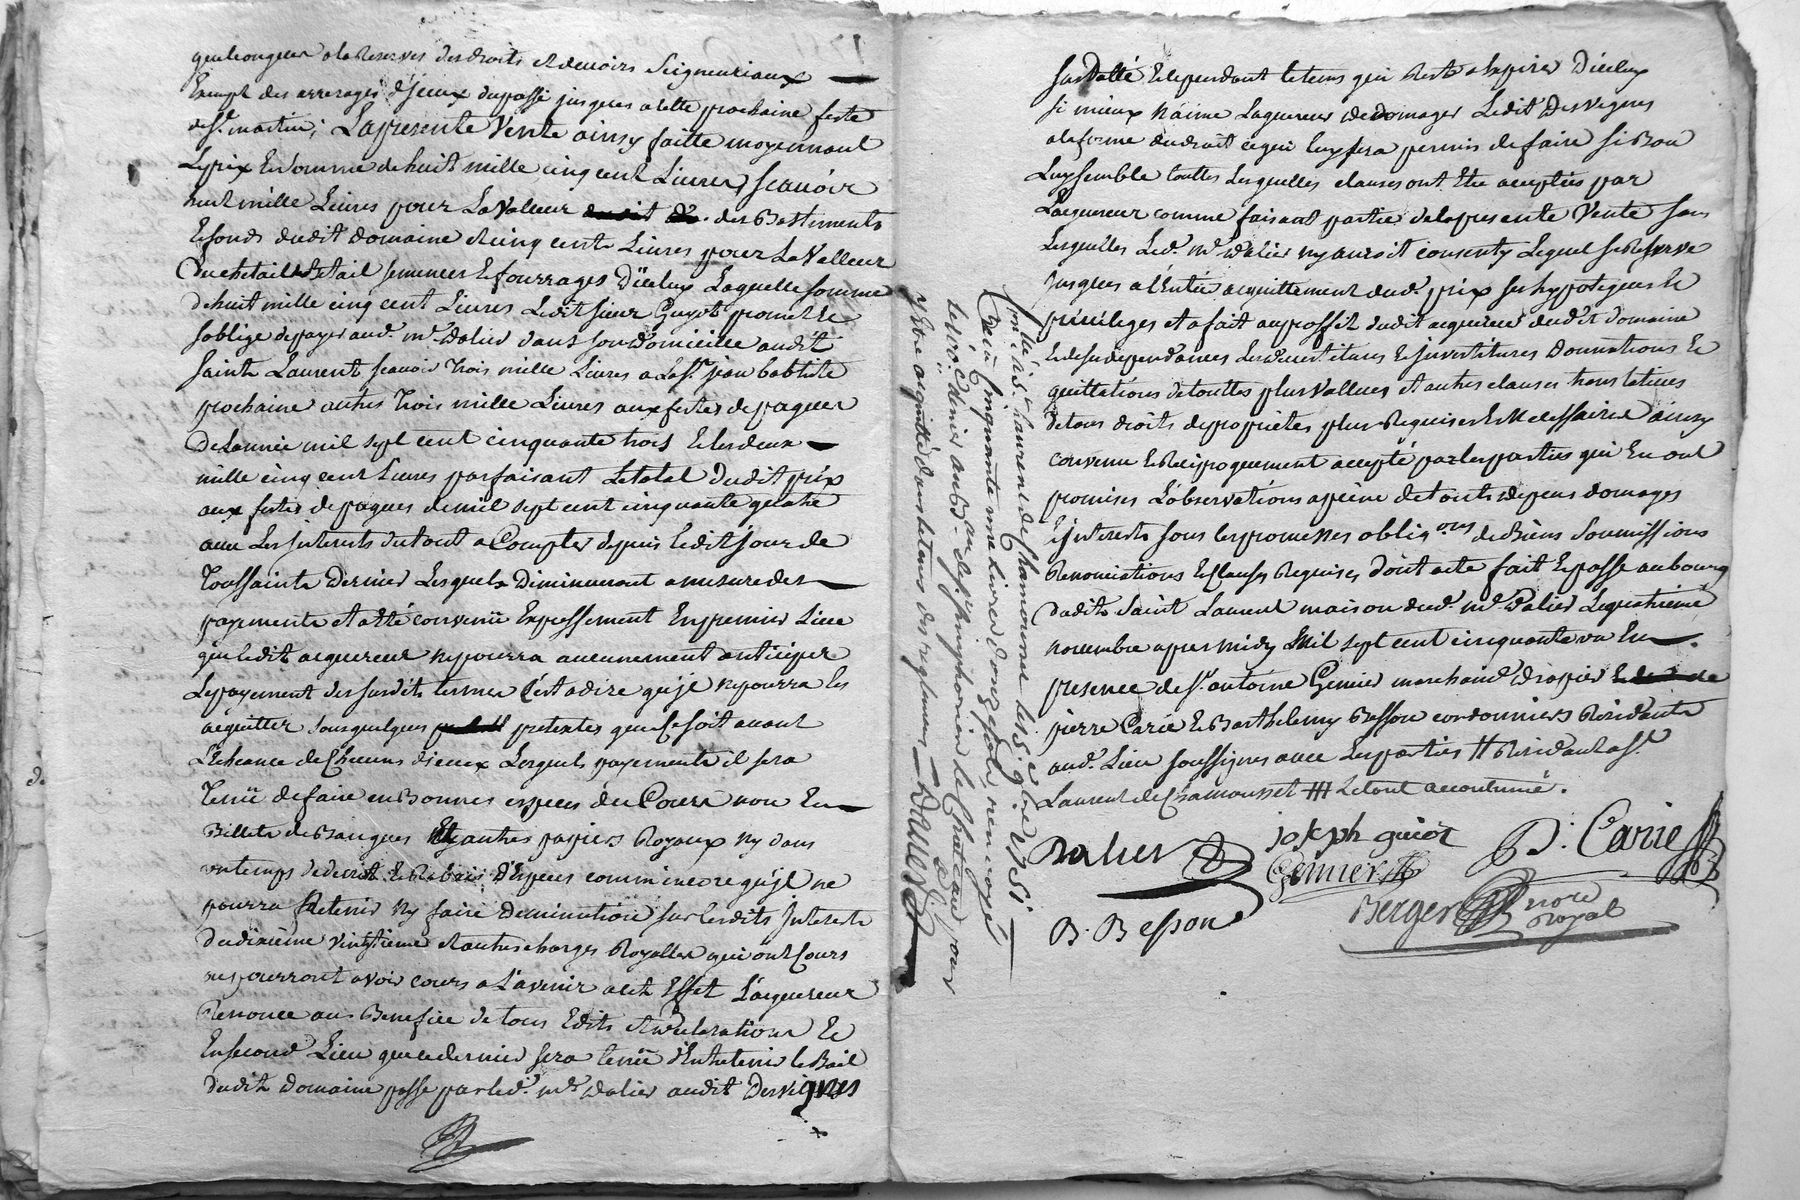 quelconques a la Reserves des droits et devoirs Seigneuriaux
Exempt des arrerages d'jceux du passé jusques a cette prochaine feste
de St. martin; La presente Vente ainsy faitte moyennant
Le prix Et Somme de huit mille cinq cent Livres, scauoir
huit mille Livres pour La Valleur des Battiments
Et fonds dudit domaine et cinq cents Livres pour La Valleur
Du Betail semences Et fourrages D'iceluy Laquelle somme
de huit mille cinq cent Livres Ledit sieur Guyot promet Et
soblige de payer aud. mr. Dalier dans son Domicille audit
Saint Laurent scauoir trois mille Livres a La St. jean babtiste
prochaine autres trois mille Livres aux festes de paques
De Lannée mil sept cent cinquante trois Et les deux
mille cinq cent Livres parfaisant Le total Dudit prix
aux festes de paques de mil sept cent cinquante quatre
auec Les jnterests du tout a Compter depuis Ledit jour de
Toussaints Dernier Lesquels Diminueront a mesure des
payements et a été conveniü Expressement En premier Lieu
que Ledit acquereur ne pourra aucunement anticiper
Le payement des susdits termes C'est a dire qu'jl ne pourra les
acquitter sous quelques pretextes que Ce soit auant
L'Echeance de Chacuns d'jceux Lesquels payements il sera
Tenü de faire en Bonnes especes du Cours non En
Billets de Banques Et autres papiers Royaux ny dans
un temps de decris Et Rabais d'Especes comm'encore qu'jl ne
pourra Retenir Ny faire Deminution sur Lesdits Jnterests
Du dixieme vingtieme et autres charges Royalles qui ont Cours
ou pourront avoir cours a L'avenir a cet Effet L'acquereur
Renonce au Benefice de tous Edits et declarations Et
En second Lieu que ce dernier sera tenü d'Entretenir le Bail
dudit domaine passé par led. mr. Dalier audit Desvignes
susdatté Et pendant le tems qui Reste a Expirer D'iceluy
si mieux N'aime L'aquereur dedomager Ledit Desvignes
a la forme du droit ce qui luy sera permis de faire si Bon
Luy semble touttes Lesquelles clauses ont Eté acceptées par
L'acquereur comme faisant partie de la presente Vente sans
Lesquelles Led. mr. Dalier n'y auroit consenty Lequel se Reserve
jusques a l'Entier acquittement dud. prix ses hypoteques Et
privileges et a fait au proffit dudit acquereur dudit domaine
Et de ses dependances Les Devestitures Et jnvestitures Donnations Et
quittations de touttes plus Vallues et autres clauses translatives
de tous droits de proprietes plus Requises Et Nécessaires ainsy
convenu Et Reciproquement accepté par les parties qui En ont
promises L'observations a peine de touts depens domages
Et jnterests sous les promesses obligons de Biens Soumissions
Renonciations Et Clauses Requises Dont acte fait Et passé au bourg
dudit Saint Laurent maison dud. mr. Dalier Le quatrieme
novembre apres midy Mil sept cent cinquante un En
presence de Sr. antoine Genier marchand Drapier
pierre Carie Et Barthelemy Besson cordonniers Residants
aud. Lieu soussignes avec Les parties # Residant a St.
Laurent de Chamousset ### Le tout accoutumé.
Dalier joseph guiot P. Carie
Genier
B. Besson Berger nore
Royal
Cllé. à St. Laurent de Chamousset le 15e. 9bre 1751
Recü cinquante une Livres